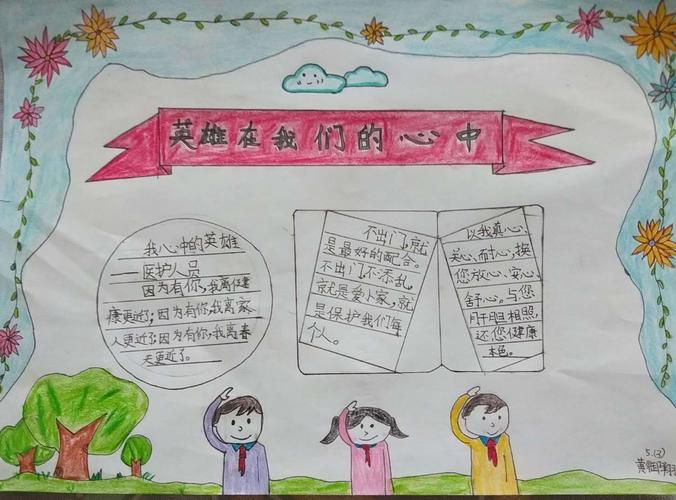 英雄在我们的心中
我心中的英雄
——医护人员
因为有你,我离健
康更近了;因为有你,我离家
人更近了;因为有你,我离春
天更近了。
不出门,就
是最好的配合。
不出门不添乱,
就是爱小家,就
是保护我们每
个人。
以我真心、
关心、耐心,换
您放心、安心、
舒心。与您
肝胆相照,
还您健康
本色。
5.(3)